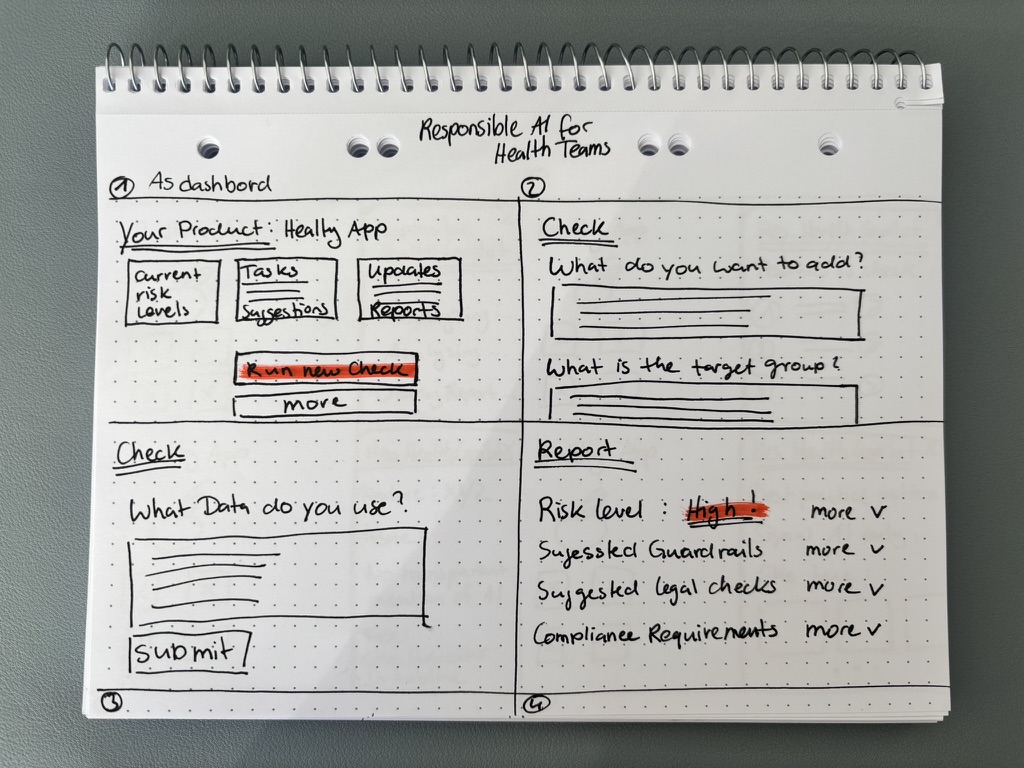 Responsible AI for
Health Teams
1 As dashbord
Your Product: Healty App
Current
risk
Levels
Tasks
Suggestions
Updates
Reports
Run new Check
more
2
Check
What do you want to add?
What is the target group?
Check
What Data do you use?
Submit
3
Report
Risk level : High! more v
Sujessted Guardrails more v
Suggested legal checks more v
Compliance Requirements more v
4